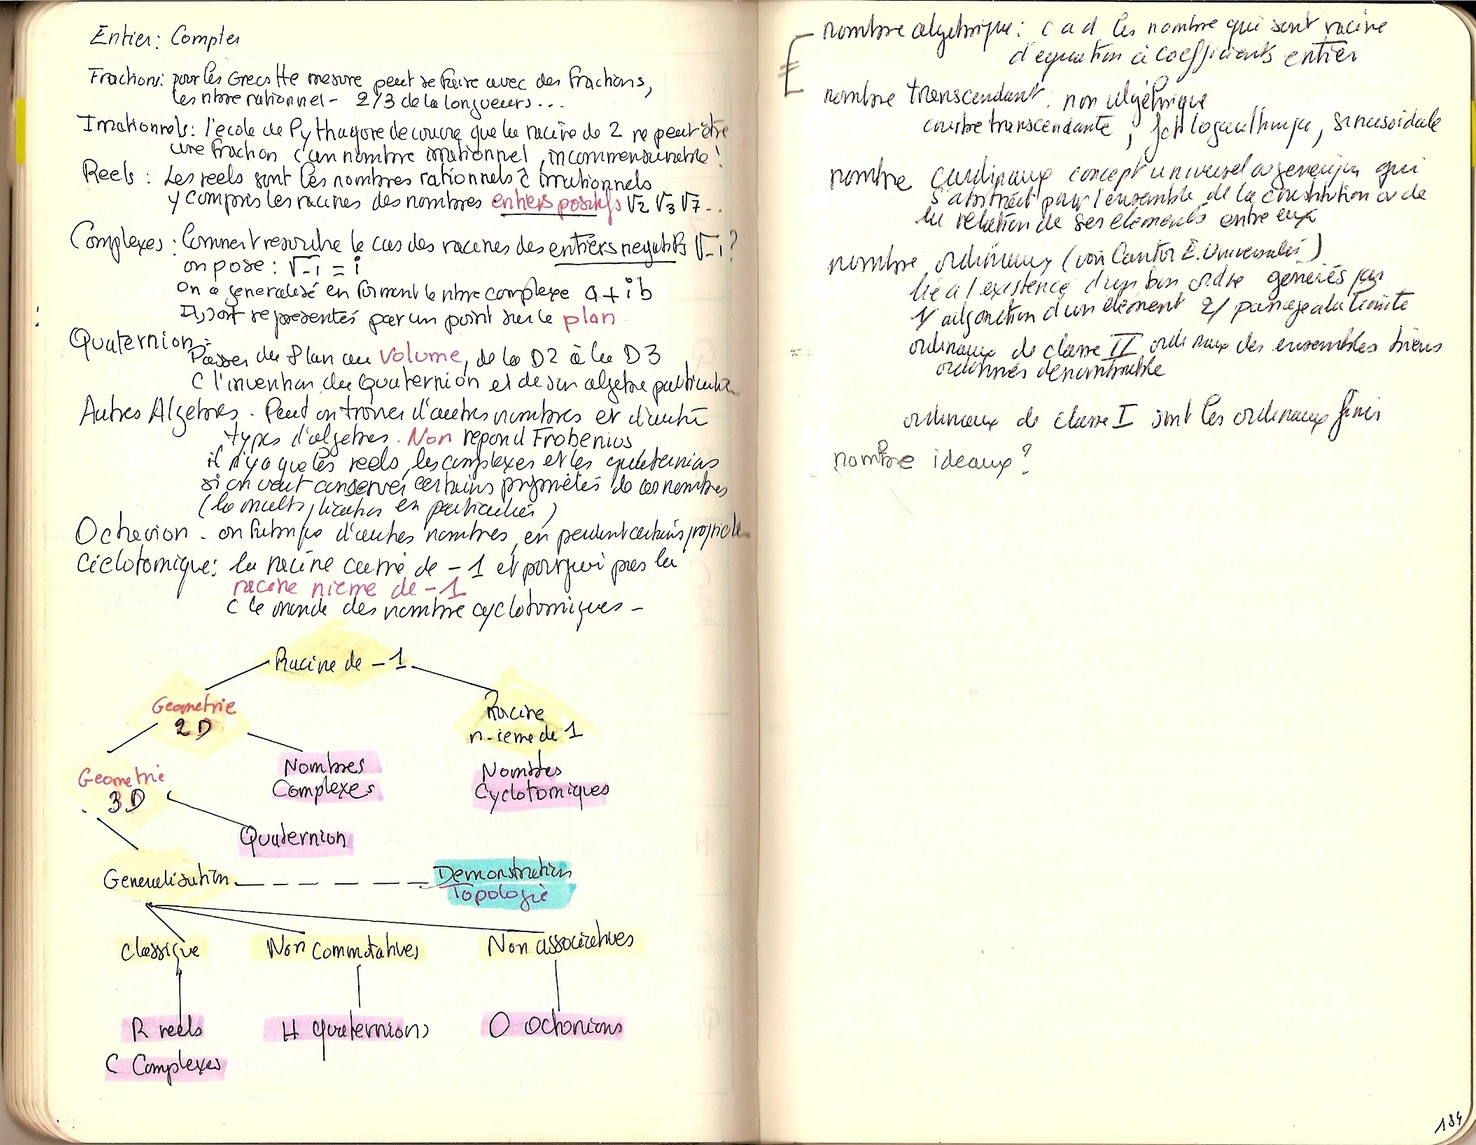 Entier: Compter
Fractions: pour les Grecs tte mesure peut se faire avec des fractions,
les nbre rationnel - 2/3 de la longueurs...
Irrationnels: l'ecole de Pythagore decouvre que la racine de 2 ne peut être
une fraction c'un nombre irrationnel, incommensurable!
Reels: Les reels sont les nombres rationnels & irrationnels
y compris les racines des nombres entiers positifs √2 √3 √7...
Complexes: Comment resoudre le cas des racines des entiers negatifs √-1?
on pose: √-1 = i
On a generalisé en formant le nbre complexe a+ib
Ils sont representés par un point sur le plan
Quaternion -
Passer du Plan au volume, de la D2 à la D3
C l'invention du Quaternion et de son algebre particulière
Autres Algebres - Peut on trouver d'autres nombres et d'autre
types d'algebres - Non repond Frobenius
il n'y a que les reels, les complexes et les quaternions
si on veut conserver certains proprietés de ces nombres
(la multiplication en particulier)
Octavion - on fabrique d'autres nombres, en perdant certains propriete
Ciclotomique: la racine carré de -1 et pourquoi pas la
racine nieme de -1
C le monde des nombre cyclotomiques -
Racine de -1
Geometrie
2D
Racine
n-ieme de 1
Geometrie
3D
Nombres
Complexes
Nombres
Cyclotomiques
Quaternion
Generalisation
Demonstration
Topologie
Classique
Non commutatives
Non associatives
R reels
H quaternions
O Octonions
C Complexes
nombre algebrique: c a d les nombre qui sont racine
d'equation à coefficients entier
nombre transcendant: non algébrique
courbe transcendante, fct logarithmique, sinusoidale
nombre cardinaux concept universel generique qui
s'abstrait pour l'ensemble de la constitution et de
la relation de ses elements entre eux
nombre ordinaux (voir Cantor E. Universalis)
lié a l'existence d'un bon ordre generés par
1/ adjonction d'un element 2/ passage a la limite
ordinaux de classe II ordinaux des ensembles biens
ordonnés denombrable
ordinaux de classe I sont les ordinaux finis
nombre ideaux?
134